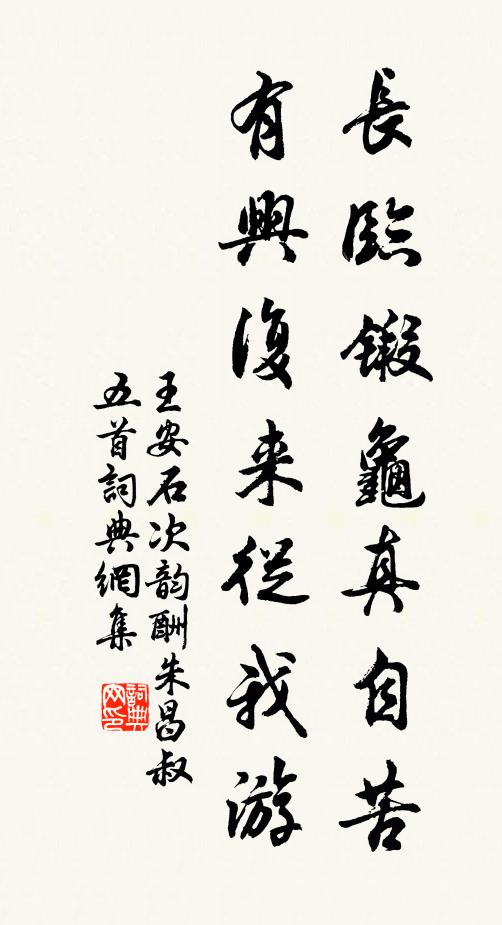 長臨鍛龜真自苦
有興復来従我游
王安石次韵酬朱昌叔
五首詞典網集
詞典
网印